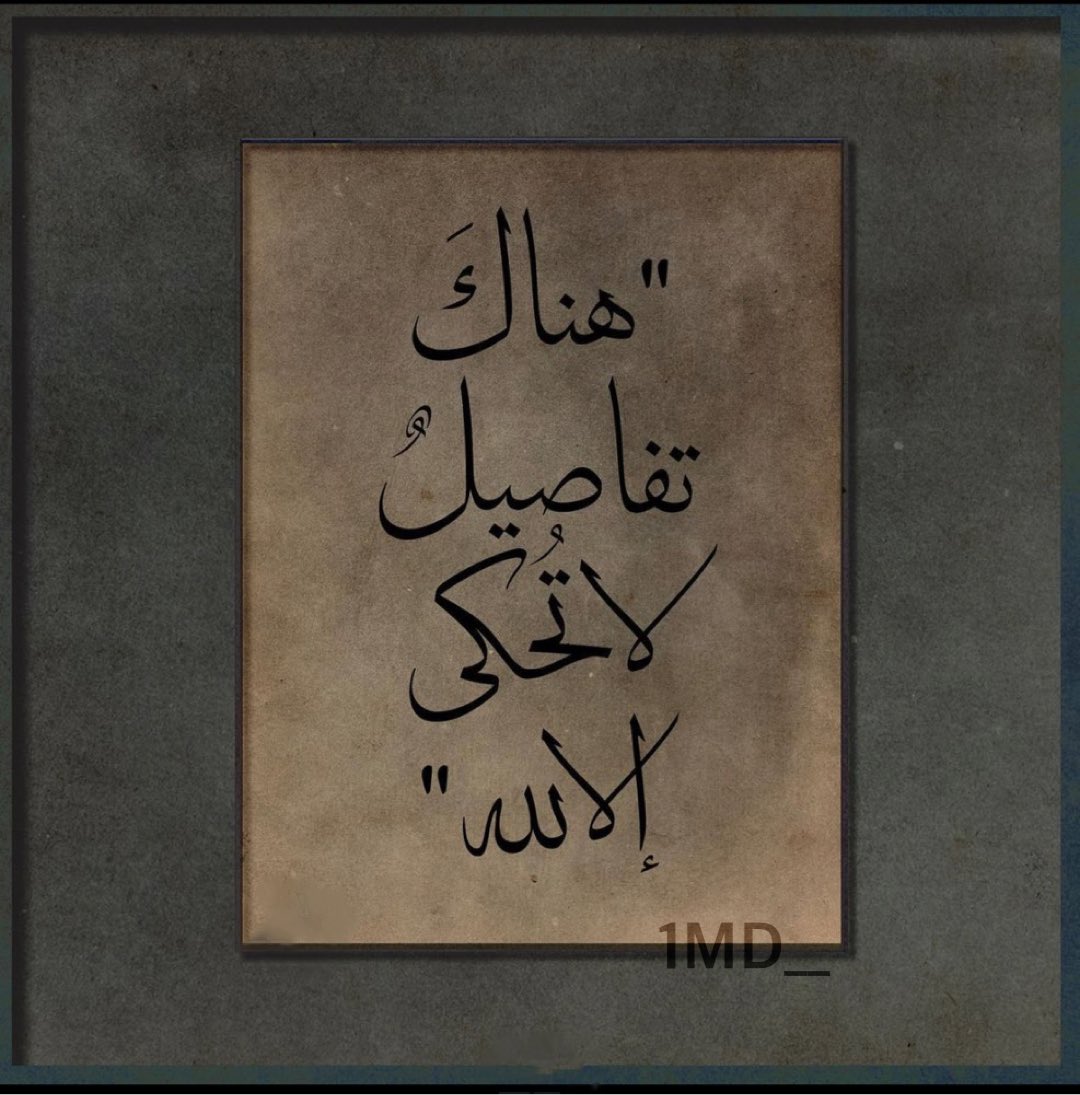 "هناكَ
تفاصيلٌ
لا تُحكى
إلا لله"
1MD_